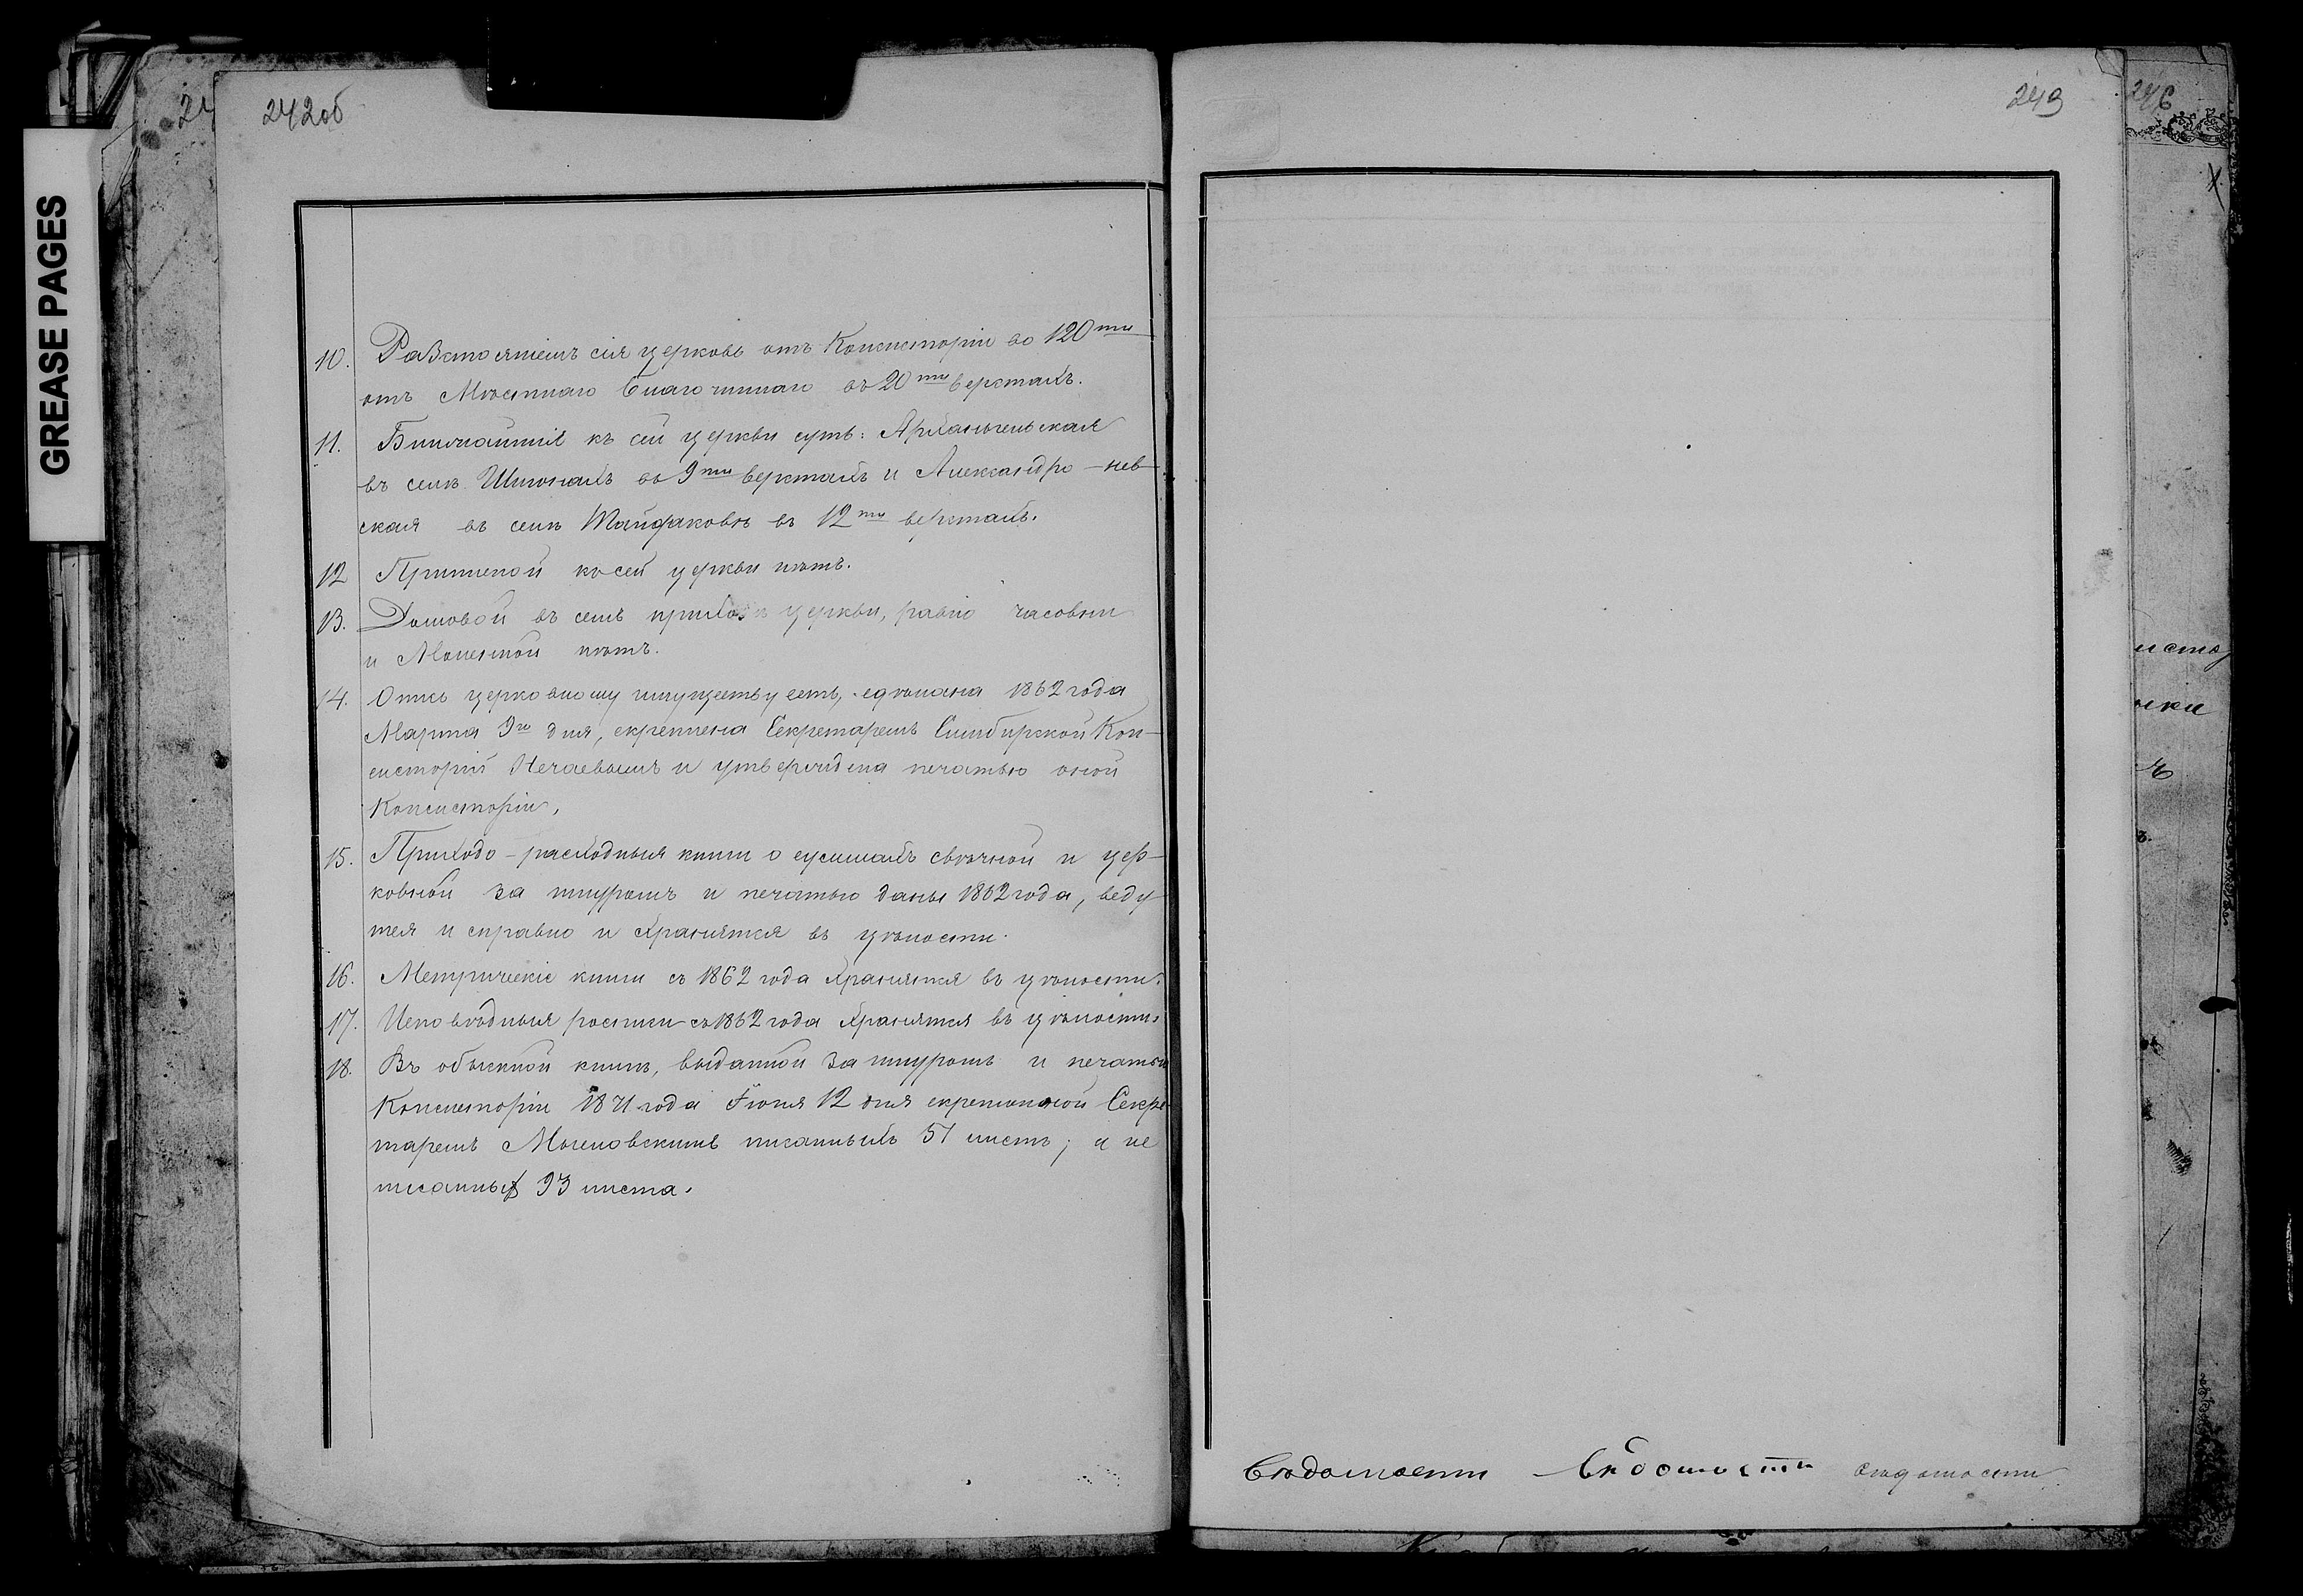 GREASE PAGES
242об
10. Разстояніемъ сія церковь отъ Консисторіи во 120ти
отъ Мѣстнаго Благочиннаго въ 20ти верстахъ.
11. Ближайшія къ сей церкви суть: Архангельская
въ селѣ Шигонахъ въ 9ти верстахъ и Александро-нев-
ская въ селѣ Тайдаковѣ въ 12ти верстахъ.
12 Приписной къ сей церкви нѣтъ.
13. Домовой въ семъ приходѣ церкви, равно часовни
и Молельной нѣтъ.
14. Опись церковному имуществу есть, сдѣлана 1862 года
Марта 9го дня, скрѣплена Секретаремъ Симбирской Кон-
систоріи Нечаевымъ и утверждена печатью оной
Консисторіи.
15. Приходо-расходныя книги о суммахъ свѣчной и цер-
ковной за шнуромъ и печатью даны 1862 года, веду
тся исправно и хранятся въ цѣлости.
16. Метрическіе книги съ 1862 года хранятся въ цѣлости.
17. Исповѣдныя росписи съ 1862 года хранятся въ цѣлости.
18. Въ обыскной книгѣ, выданной за шнуромъ и печатью
Консисторіи 1871 года Іюня 12 дня скрѣпленной Секре-
таремъ писанныхъ 51 листъ; и не
писанных 93 листа.
243
Вѣдомости Вѣдомости вѣдомости
246